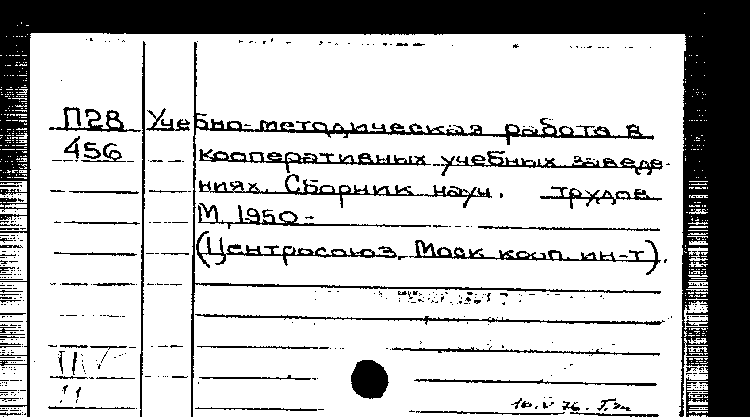 П28 Учебно-методическая работа в
456 кооперативных учебных заведе-
ниях. Сборник науч. трудов
М., 1950-
(Центросоюз. Моск кооп. ин-т).